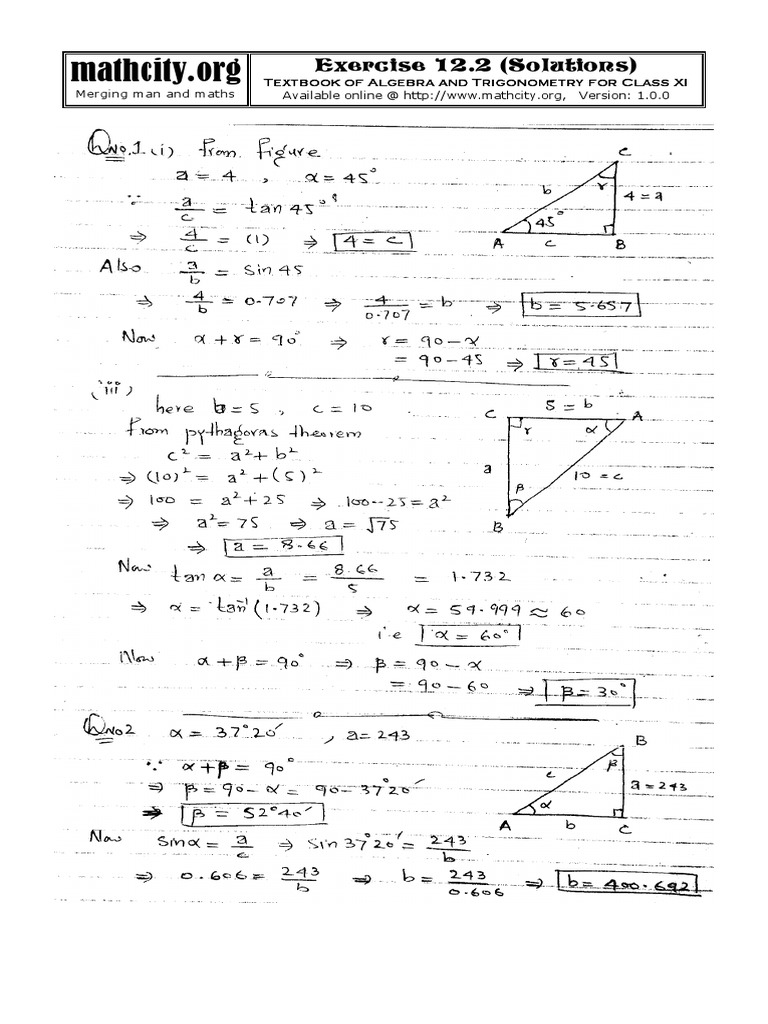 mathcity.org
Merging man and maths
Exercise 12.2 (Solutions)
TEXTBOOK OF ALGEBRA AND TRIGONOMETRY FOR CLASS XI
Available online @ http://www.mathcity.org, Version: 1.0.0
QNo.1 (i) From figure
a = 4 , α = 45°
∵ a/c = tan 45°
⇒ 4/c = (1) ⇒ 4 = c
C
b
r
4 = a
45°
A c B
Also a/b = sin 45
⇒ 4/b = 0.707 ⇒ 4/0.707 = b ⇒ b = 5.657
Now α + r = 90° ⇒ r = 90 - α
= 90 - 45 ⇒ r = 45
(iii)
here b = 5 , c = 10
From pythagoras theorem
c² = a² + b²
⇒ (10)² = a² + (5)²
⇒ 100 = a² + 25 ⇒ 100 - 25 = a²
⇒ a² = 75 ⇒ a = √75
⇒ a = 8.66
5 = b
C A
r α
a
10 = c
β
B
Now tan α = a/b = 8.66/5 = 1.732
⇒ α = tan⁻¹(1.732) ⇒ α = 59.999 ≈ 60
i.e α = 60°
Now α + β = 90° ⇒ β = 90 - α
= 90 - 60 ⇒ β = 30°
QNo2 α = 37°20′ , a = 243
∵ α + β = 90°
⇒ β = 90 - α = 90 - 37°20′
⇒ β = 52°40′
B
β
c
a = 243
α
A b C
Now sin α = a/c ⇒ sin 37°20′ = 243/b
⇒ 0.606 = 243/b ⇒ b = 243/0.606 ⇒ b = 400.692